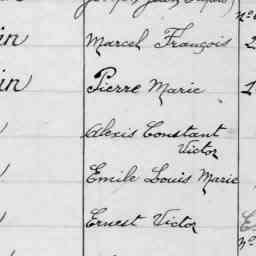 in Marcel François 2
in Pierre Marie 1
Alexis Constant
Victor
Emile Louis Marie
Ernest Victor